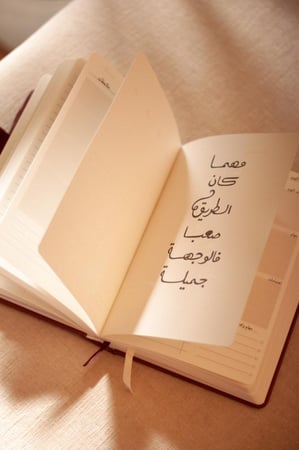 مهما
كان
الطريق
صعبا
فالوجهة
جميلة